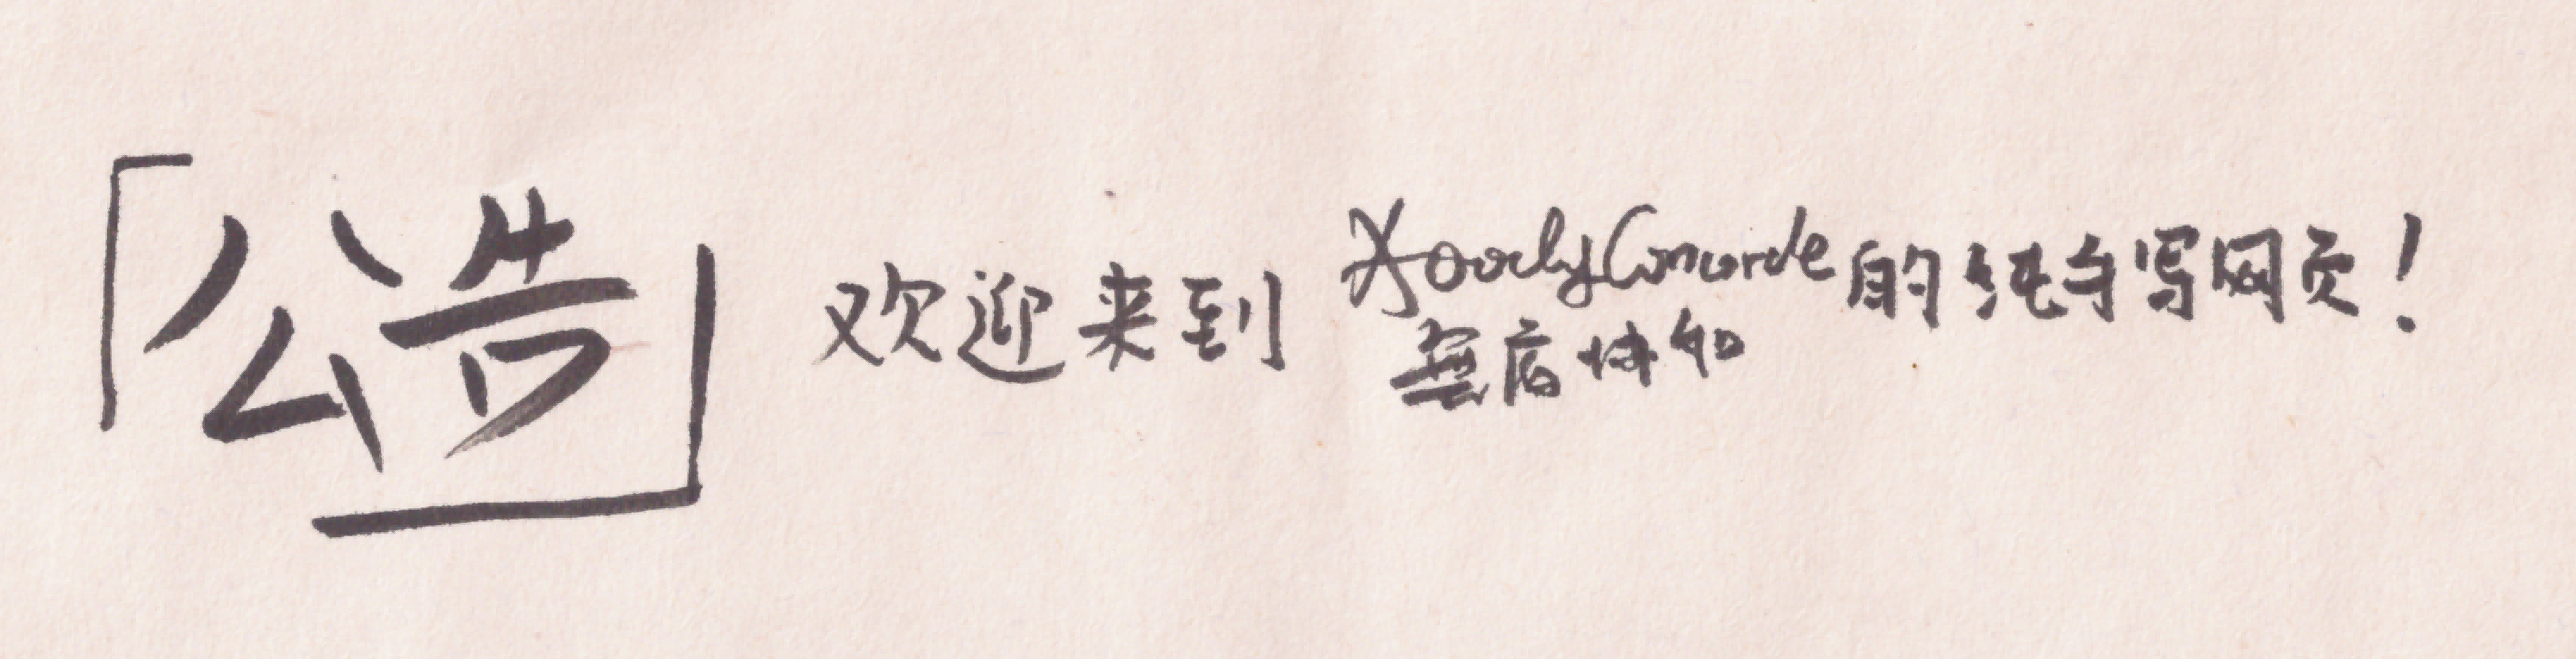 「公告」 欢迎来到 XoodyConcorde 的纯手写网页！
協和